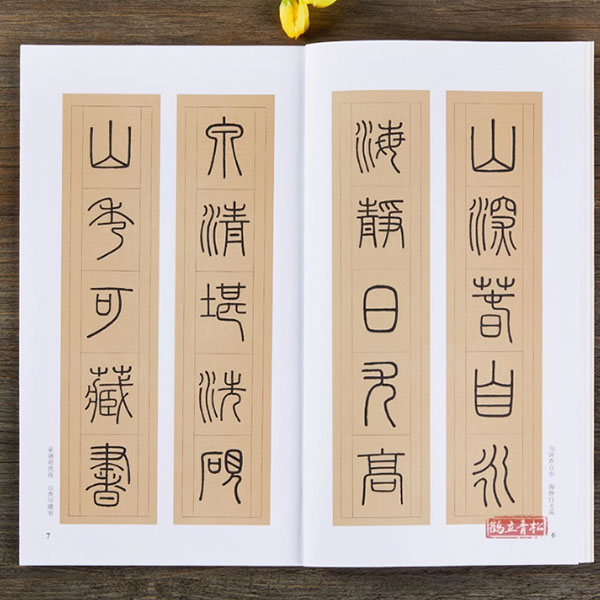 山深春自永
海靜日尤高
山深春自永 海静日尤高
6
鹤立青松
泉清堪洗硯
山秀可藏書
泉清堪洗砚 山秀可藏书
7